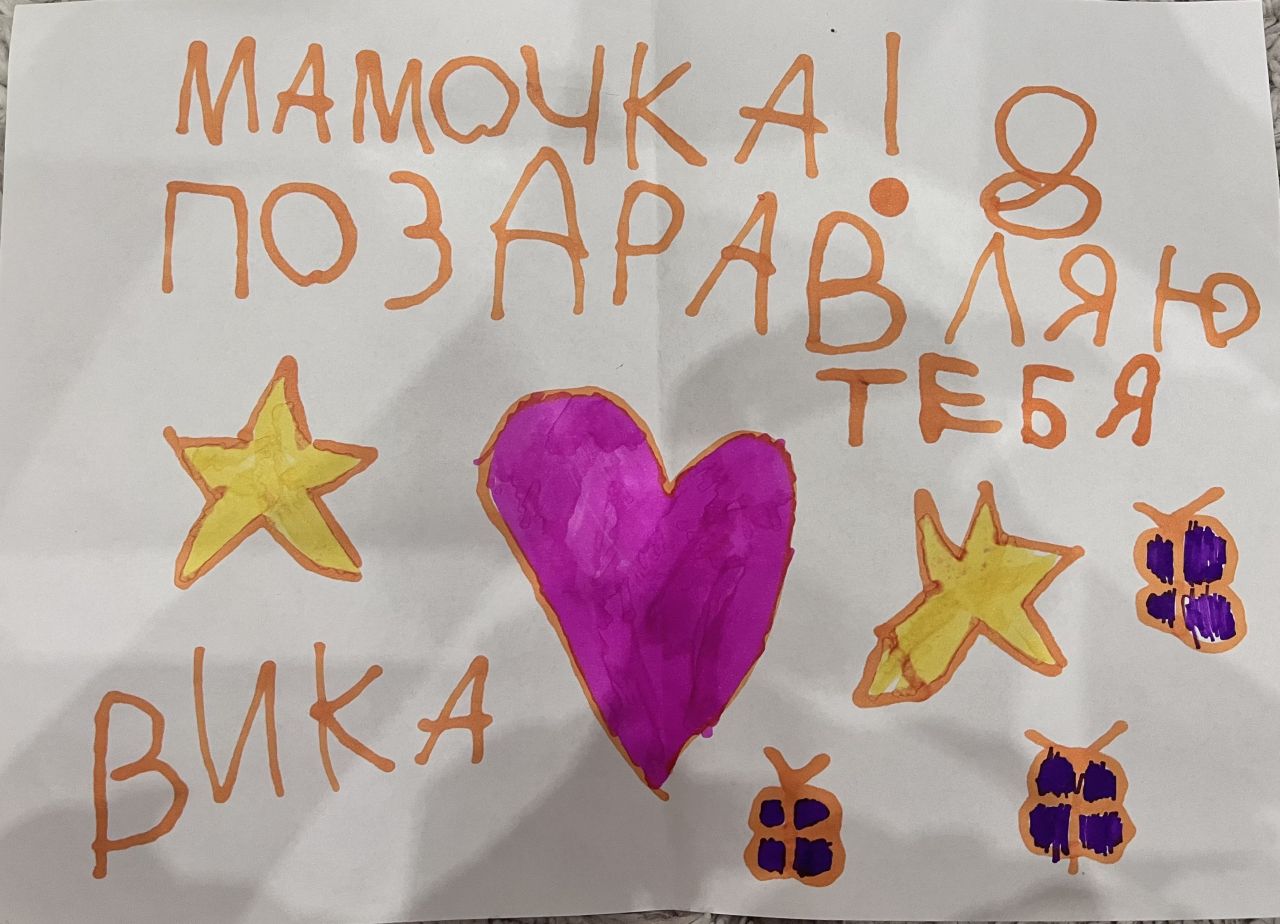 МАМОЧКА! 8
ПОЗДРАВЛЯЮ
ТЕБЯ
ВИКА